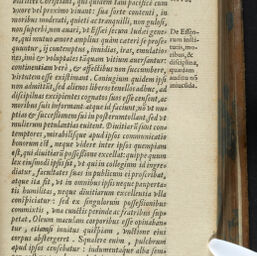 uxore vel proximo viuant: sua sorte contenti, in
moribus moderati, quieti ac tranquilli, non gulosi,
non superbi, non auari, vt Essei secus Iudæi gene-
re, qui mutuo amore amplius quàm cæteri se prose-
quuntur, ij contemptus, inuidias, iras, emulatio-
nes, omnes & voluptates tãquam vitium auersantur:
continentiam verò, & affectibus non succumbere,
virtutem esse existimant. Coniugium quidem ipsi
non admittunt, sed alienos liberos tenellos adhuc, ad
disciplinas excipientes cognatos suos esse censent, ac
moribus suis informant. atque id faciunt, nõ vt nu-
ptias & successionem sui in posterum tollant, sed vt
mulierum petulantias euitent. Diuitiarũ sunt con-
temptores, mirabilisque apud ipsos communicatio
bonorum est, neque videre inter ipsos quenquam
est, qui diuitiarũ possessione excellat: quippe quum
lex eiusmodi ipsis sit, vt qui in collegium id ingre-
diatur, facultates suas in publicum ei proscribat,
atque ita fit, vt in omnibus ipsis neque pauperta-
tis humilitas, neque diuitiarum excellentia vlla
conspiciatur: sed ex singulorum possessionibus
commixtis, vna cunctis perinde ac fratribus sup-
petat. Oleum maculas corporibus esse opinãtur
tur, etiamsi inuitus quispiam, vnctione eius
corpus abstergeret. Squalere enim, pulchrum
apud ipsos censebatur: indumentaque alba semi-
De Essæo-
rum insti-
tutis, mo-
ribus, &
disciplina,
quædam
auditu nõ
iniucunda.